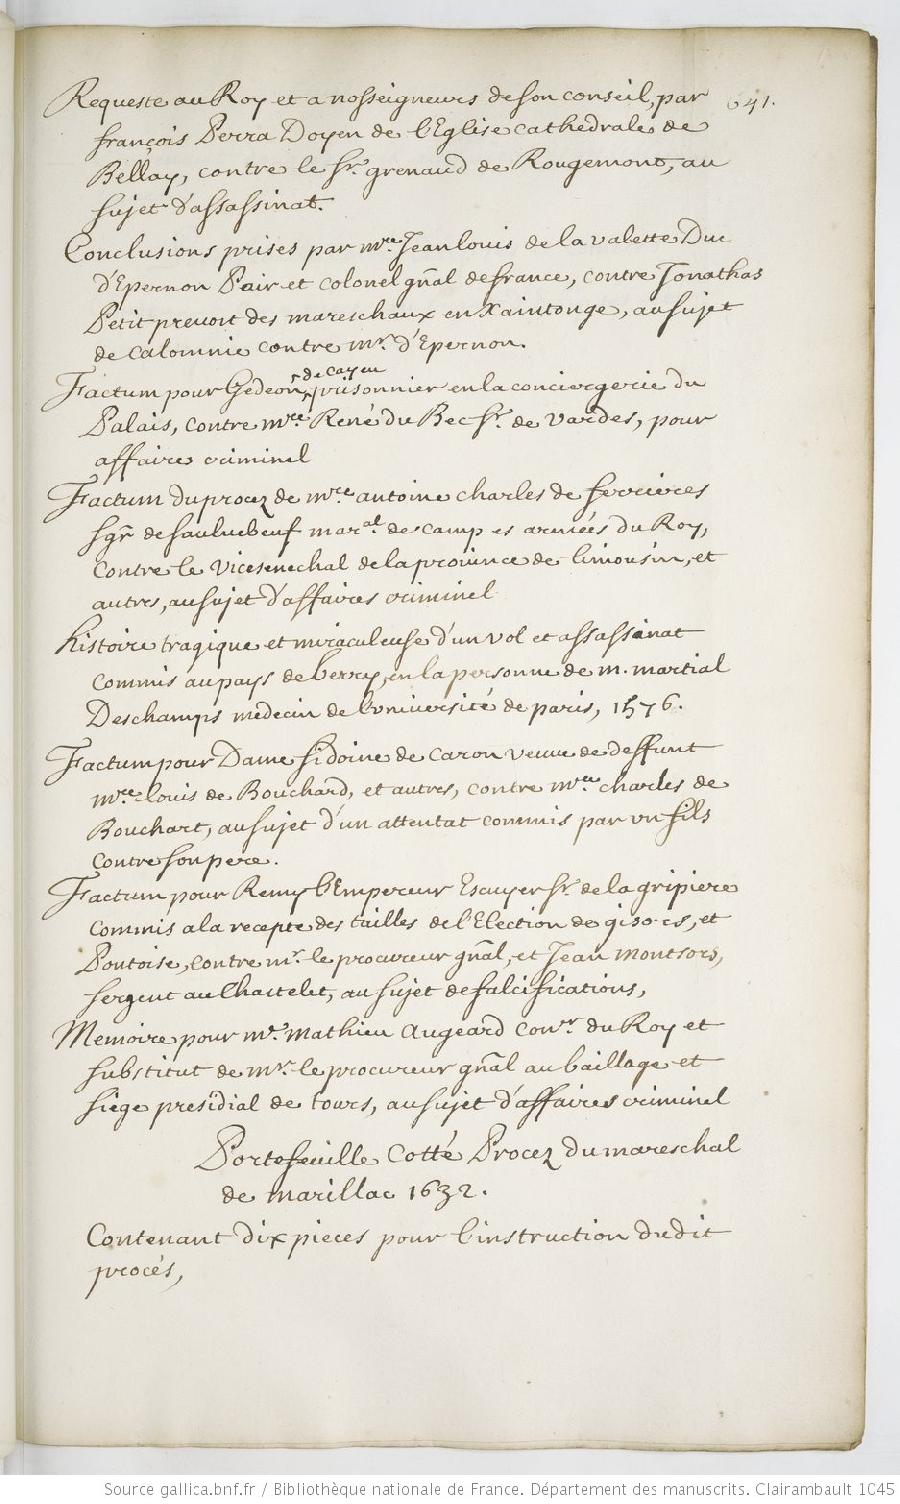 641.
Requeste au Roy et a nosseigneurs de son conseil, par
françois Perra Doyen de l'Eglise cathedrale de
Bellay, contre le sr. grenaud de Rougemont, au
sujet d'assassinat.
Conclusions prises par mre. Jean louis de la valette Duc
d'Epernon Pair et colonel gñal de france, contre Jonathas
Petit prevost des mareschaux en Xaintonge, au sujet
de calomnie contre mr. d'Epernon.
Factum pour Gedeon de Cayeu prisonnier en la conciergerie du
Palais, contre mre. René du Bec sr. de vardes, pour
affaires criminel
Factum du procez de mre antoine charles de ferrieres
sgr de sauluebeuf maral. de camp es armées du Roy,
contre le vicesenechal de la province de limousin, et
autres, au sujet d'affaires criminel
histoire tragique et miraculeuse d'un vol et assassinat
commis au pays de berry, en la personne de m. martial
Deschamps medecin de l'université de paris, 1576.
Factum pour Dame sidoine de caron veuue de deffunt
mre. louis de Bouchard, et autres, contre mre. charles de
Bouchart, au sujet d'un attentat commis par vn fils
contre son pere.
Factum pour Remy l'Empereur Escuyer sr. de la gripiere
commis a la recepte des tailles de l'Election de gisors, et
Pontoise, contre mr. le procureur gñal, et Jean montsors,
sergent au Chastelet, au sujet de falcifications,
Memoire pour mr. mathieu augeard conr. du Roy et
substitut de mr. le procureur gñal au baillage et
siége presidial de tours, au sujet d'affaires criminel
Portefeuille Cotté Procez du mareschal
de marillac 1632.
Contenant dix pieces pour l'instruction dudit
procés,
Source gallica.bnf.fr / Bibliothèque nationale de France. Département des manuscrits. Clairambault 1045